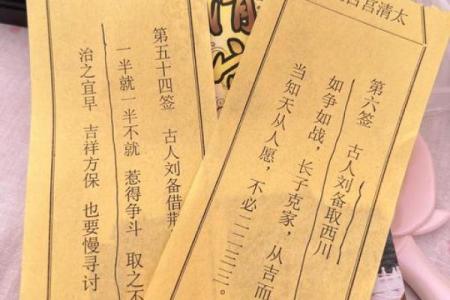 太清宫古
第六签 古人刘备取西川
如争如战，长子克家，从吉而
当知天从人愿，不必二二三三。
第五十四签 古人刘备借荆
一半就一半不就 惹得争斗 取之不
治之宜早 吉祥方保 也要慢寻讨